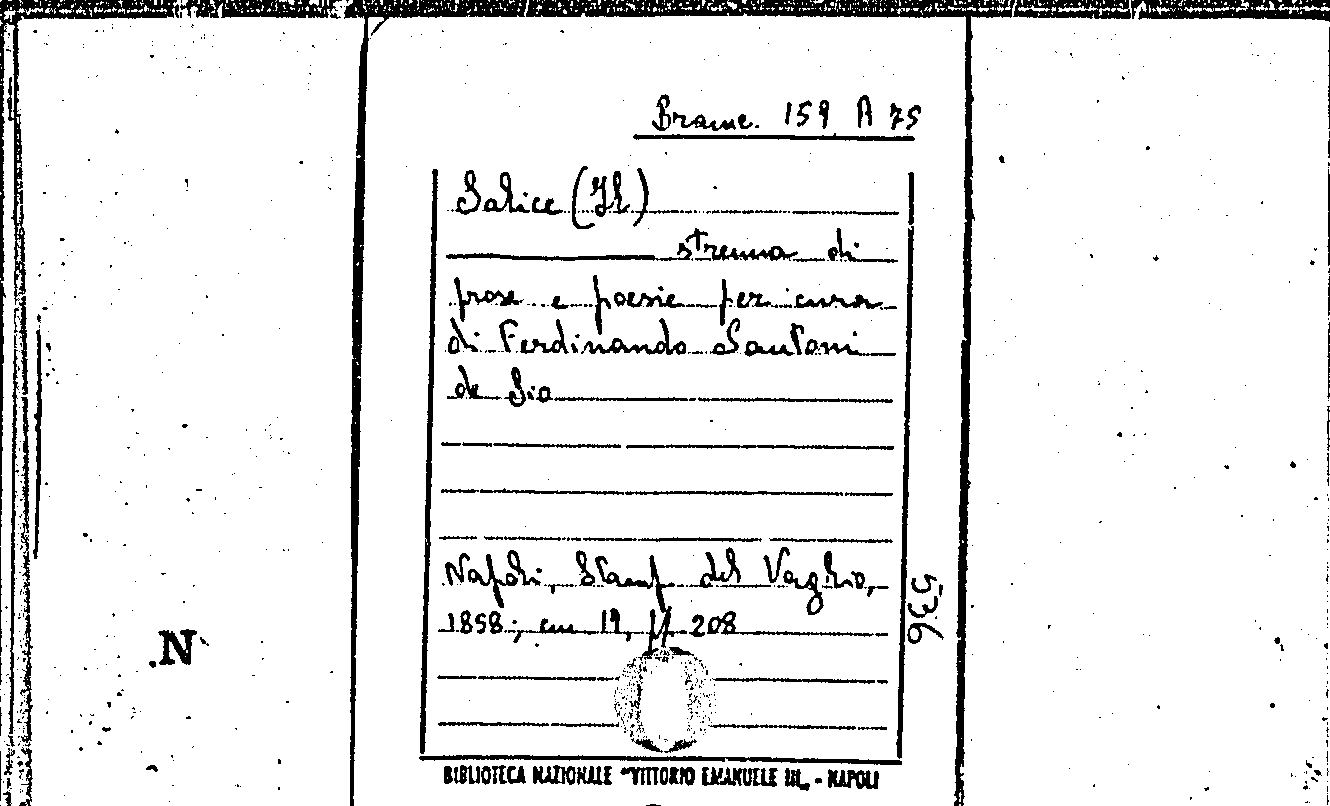 Branc. 159 A 75
Salice (Il)
strenna di
prose e poesie per cura
di Ferdinando Santoni
de Sio
Napoli, Stamp. del Vaglio,
1858; cm 19, pp. 208
536
.N
BIBLIOTECA NAZIONALE "VITTORIO EMANUELE III„ - NAPOLI